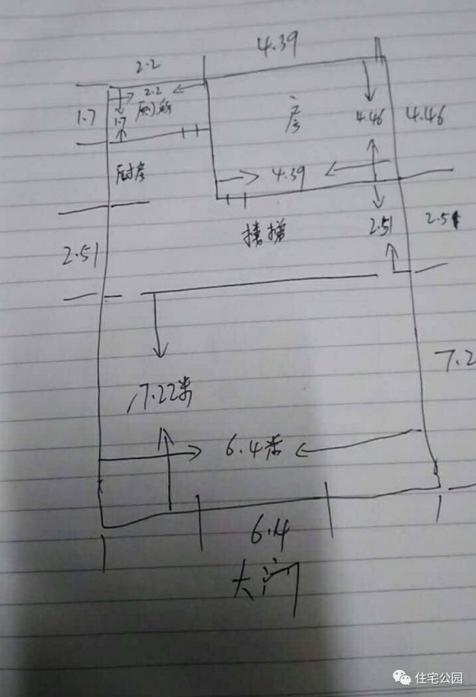 2.2
4.39
1.7
2.2
1.7
厕所
房
4.46
4.46
厨房
4.39
楼梯
2.51
2.51
2.51
7.2
7.22米
6.4米
6.4
大门
住宅公园